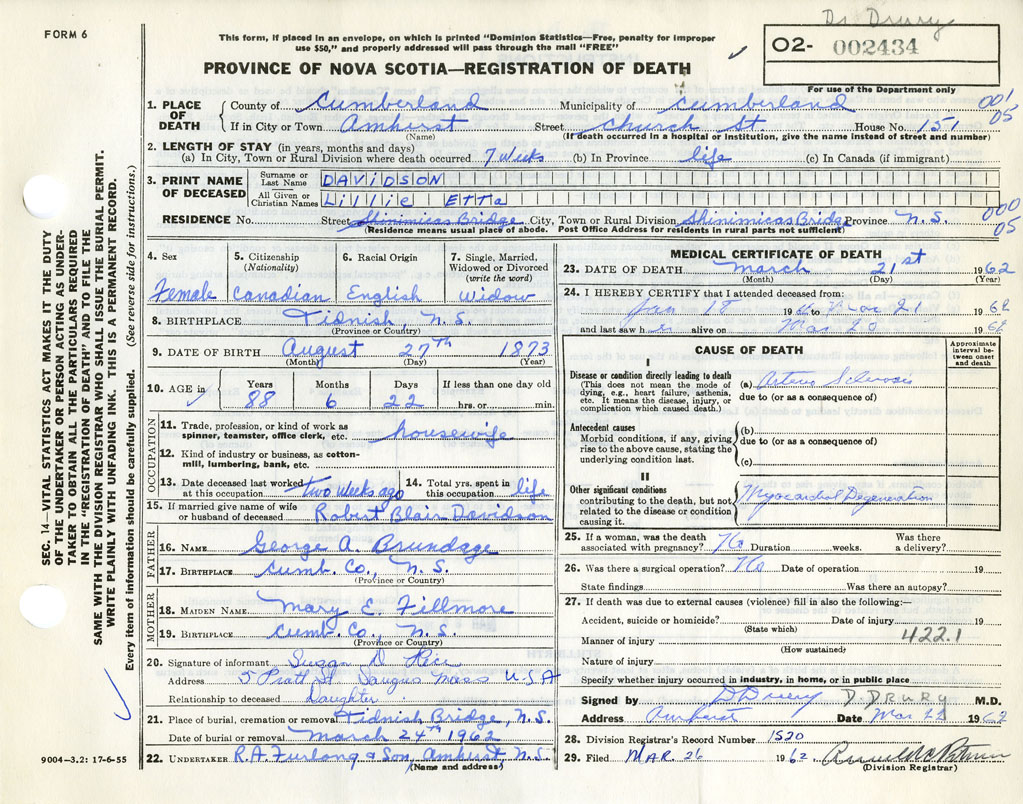 Dr Drury
FORM 6
This form, if placed in an envelope, on which is printed "Dominion Statistics—Free, penalty for improper
use $50," and properly addressed will pass through the mail "FREE"
02- 002434
PROVINCE OF NOVA SCOTIA—REGISTRATION OF DEATH
For use of the Department only
SEC. 14—VITAL STATISTICS ACT MAKES IT THE DUTY
OF THE UNDERTAKER OR PERSON ACTING AS UNDER-
TAKER TO OBTAIN ALL THE PARTICULARS REQUIRED
IN THE "REGISTRATION OF DEATH" AND TO FILE THE
SAME WITH THE DIVISION REGISTRAR WHO SHALL ISSUE THE BURIAL PERMIT.
WRITE PLAINLY WITH UNFADING INK. THIS IS A PERMANENT RECORD.
Every item of information should be carefully supplied. (See reverse side for instructions.)
1. PLACE OF DEATH
County of Cumberland Municipality of Cumberland 001
05
If in City or Town Amherst Street Church St. House No. 151
(Name) (If death occurred in a hospital or institution, give the name instead of street and number)
2. LENGTH OF STAY (in years, months and days)
(a) In City, Town or Rural Division where death occurred 7 weeks (b) In Province life (c) In Canada (if immigrant)
3. PRINT NAME OF DECEASED
Surname or Last Name DAViDSON
All Given or Christian Names LiLLiE ETTa
RESIDENCE No. Street Shinimicas Bridge City, Town or Rural Division Shinimicas Bridge Province N.S. 000
05
(Residence means usual place of abode. Post Office Address for residents in rural parts not sufficient)
4. Sex
Female
5. Citizenship
(Nationality)
Canadian
6. Racial Origin
English
7. Single, Married,
Widowed or Divorced
(write the word)
Widow
8. BIRTHPLACE Tidnish, N.S.
(Province or Country)
9. DATE OF BIRTH August 27th 1873
(Month) (Day) (Year)
10. AGE in Years Months Days If less than one day old
88 6 22 hrs. or min.
OCCUPATION
11. Trade, profession, or kind of work as
spinner, teamster, office clerk, etc. housewife
12. Kind of industry or business, as cotton-
mill, lumbering, bank, etc.
13. Date deceased last worked
at this occupation two weeks ago
14. Total yrs. spent in
this occupation life
15. If married give name of wife
or husband of deceased Robert Blair Davidson
FATHER
16. NAME George A. Brundage
17. BIRTHPLACE Cumb. Co., N.S.
(Province or Country)
MOTHER
18. MAIDEN NAME Mary E. Fillmore
19. BIRTHPLACE Cumb. Co., N.S.
(Province or Country)
20. Signature of informant Susan D Rice
Address 5 Pratt St. Saugus Mass USA
Relationship to deceased Daughter
21. Place of burial, cremation or removal Tidnish Bridge, N.S.
Date of burial or removal March 24th 1962
22. UNDERTAKER R.A. Furlong & Son Amherst, N.S.
(Name and address)
9004—3.2: 17-6-55
MEDICAL CERTIFICATE OF DEATH
23. DATE OF DEATH March 21st 1962
(Month) (Day) (Year)
24. I HEREBY CERTIFY that I attended deceased from:
Jan 18 19 to Mar 21 1962
and last saw her alive on Mar 20 1962
CAUSE OF DEATH
Approximate
interval be-
tween onset
and death
Disease or condition directly leading to death
(This does not mean the mode of
dying, e.g., heart failure, asthenia,
etc. It means the disease, injury, or
complication which caused death.)
(a) Arterio Sclerosis
due to (or as a consequence of)
Antecedent causes
Morbid conditions, if any, giving
rise to the above cause, stating the
underlying condition last.
(b)
due to (or as a consequence of)
(c)
II
Other significant conditions
contributing to the death, but not
related to the disease or condition
causing it.
Myocardial Degeneration
25. If a woman, was the death
associated with pregnancy? No Duration weeks. Was there
a delivery?
26. Was there a surgical operation? No Date of operation 19
State findings Was there an autopsy?
27. If death was due to external causes (violence) fill in also the following:—
Accident, suicide or homicide? Date of injury 19
(State which)
422.1
Manner of injury
(How sustained)
Nature of injury
Specify whether injury occurred in industry, in home, or in public place
Signed by D Drury D. DRURY M.D.
Address Amherst Date Mar 22 1962
28. Division Registrar's Record Number 1520
29. Filed MAR 26 1962
(Division Registrar)